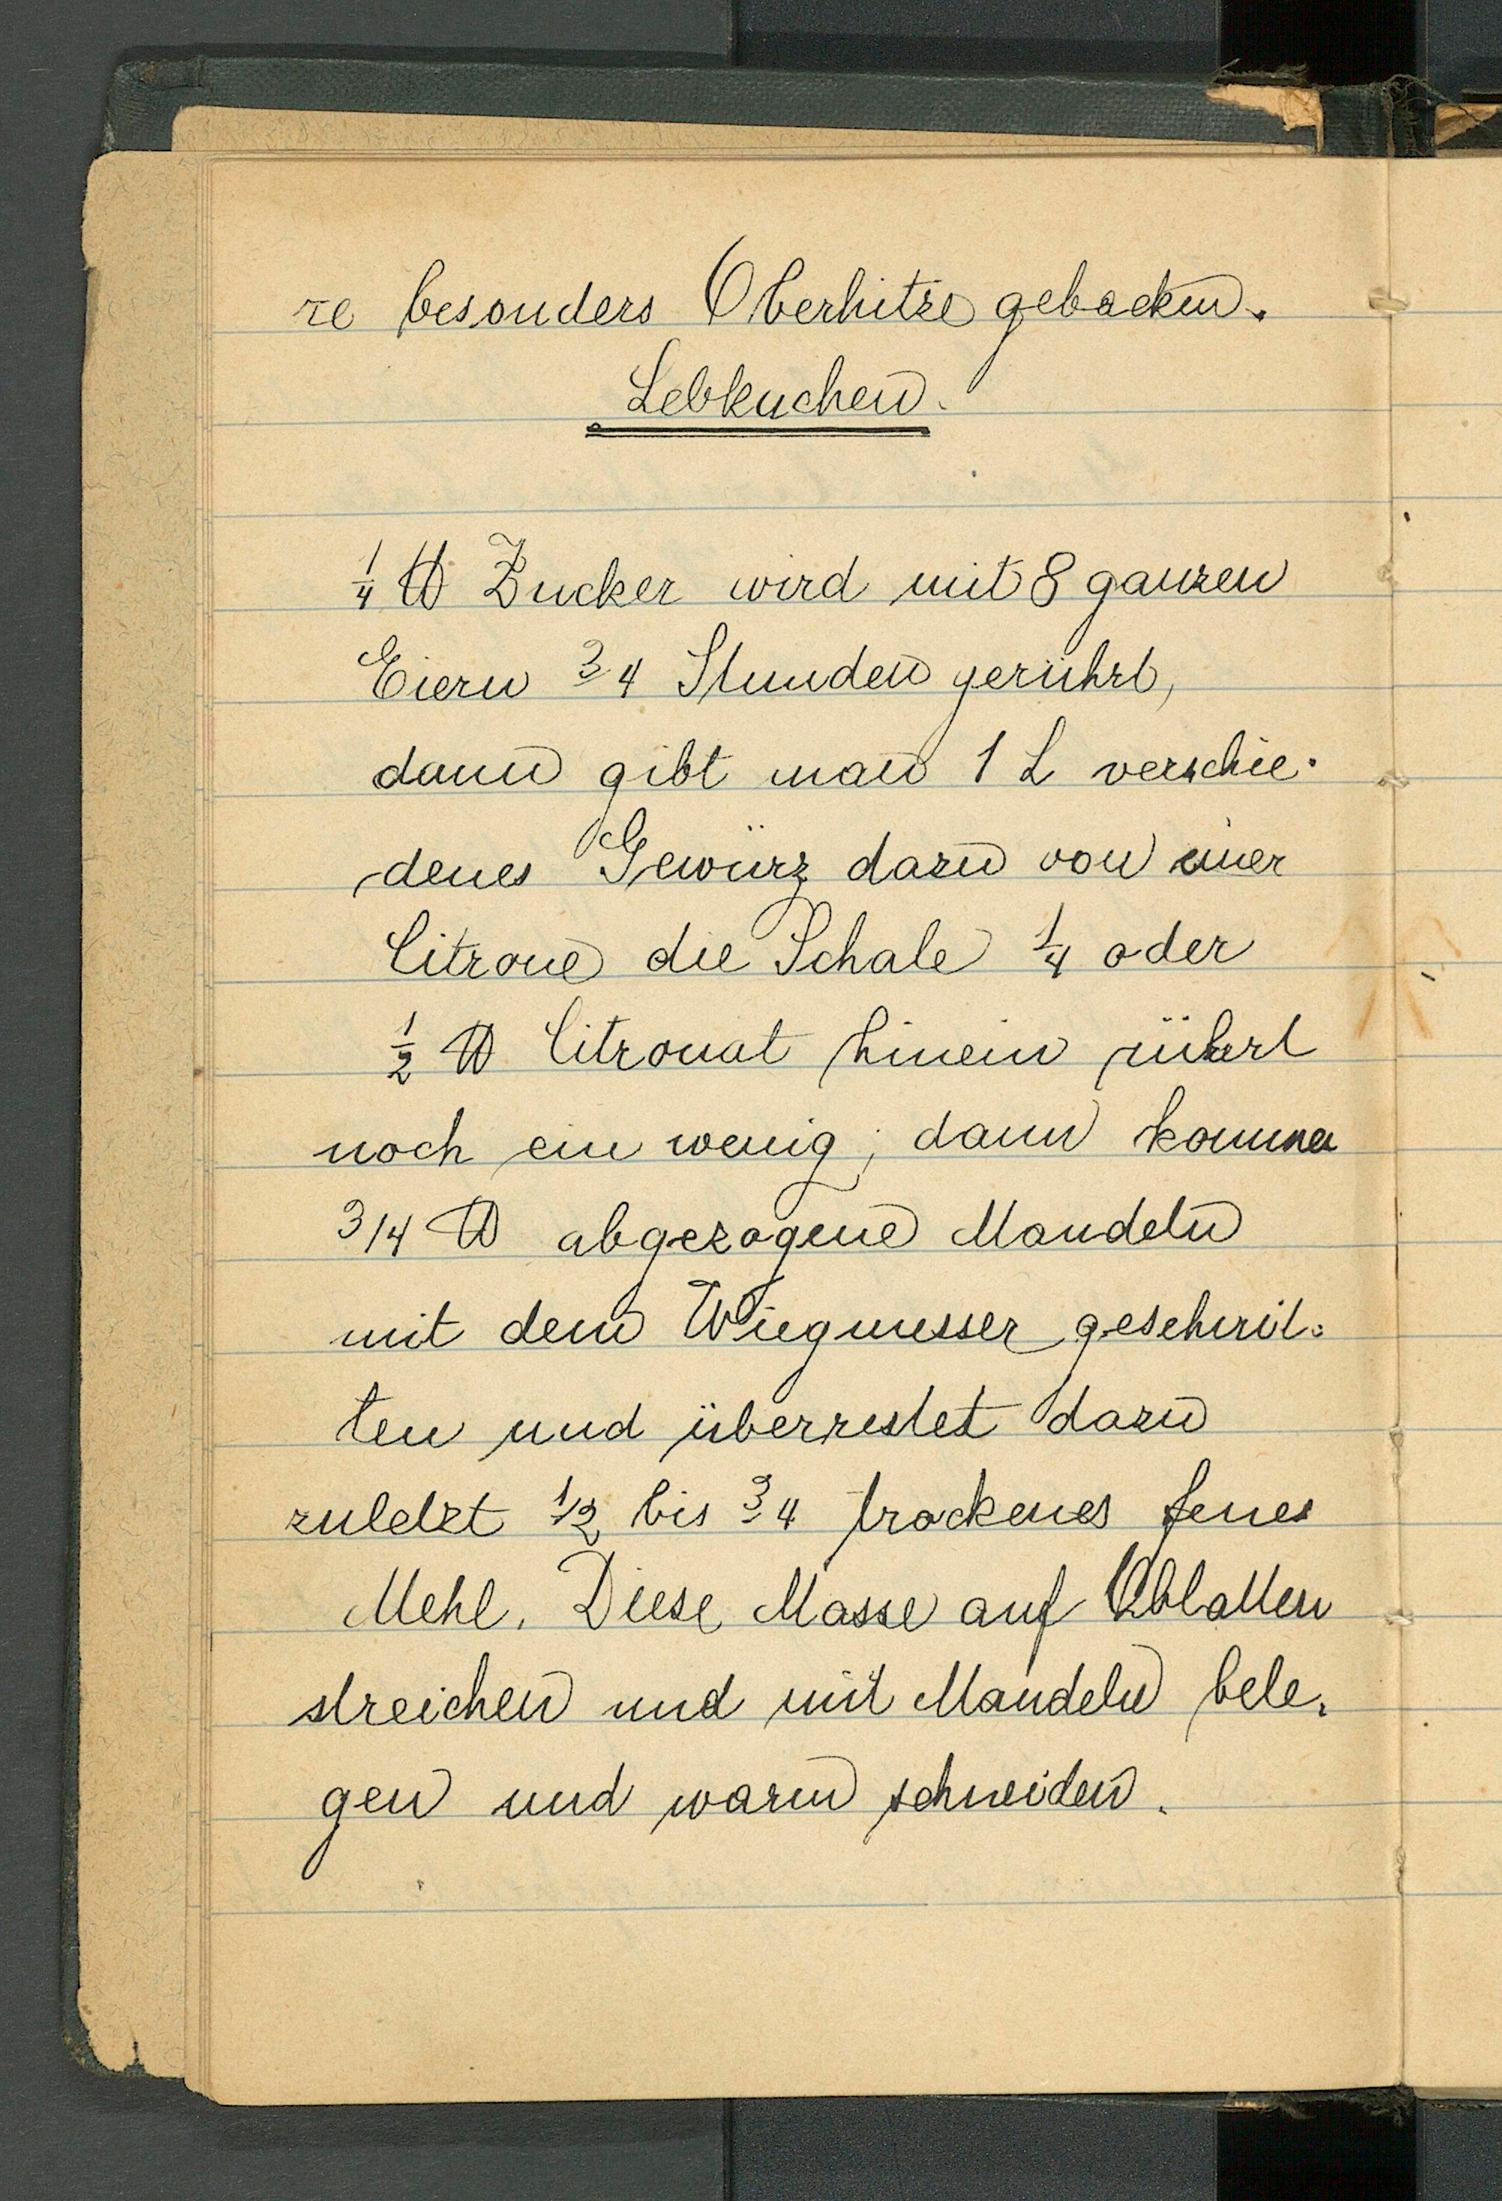 re besonders Oberhitze gebacken.
Lebkuchen.
1/4 ℔ Zucker wird mit 8 ganzen
Eiern 3/4 Stunden gerührt,
dann gibt man 1 L verschie-
denes Gewürz dazu von einer
Citrone die Schale 1/4 oder
1/2 ℔ Citronat hinein rührt
noch ein wenig; dann kommen
3/4 ℔ abgezogene Mandeln
mit dem Wiegmesser geschnit-
ten und überrestet dazu
zuletzt 1/2 bis 3/4 trockenes feines
Mehl. Diese Masse auf Oblatten
streichen und mit Mandeln bele-
gen und warm schneiden.